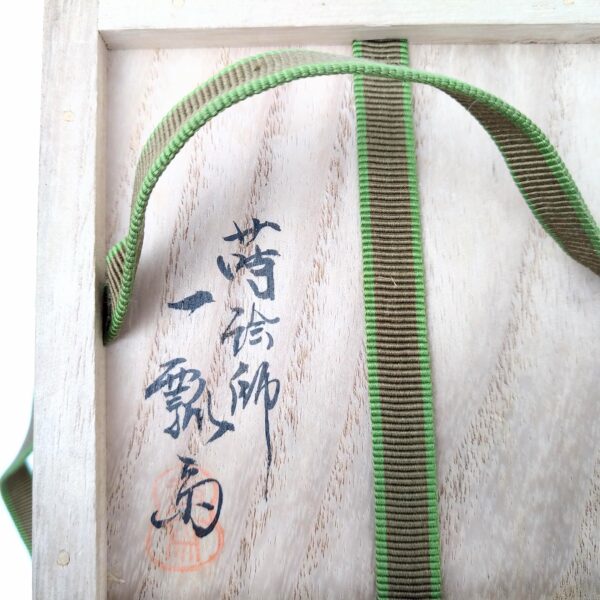 蒔絵師
一瓢斎